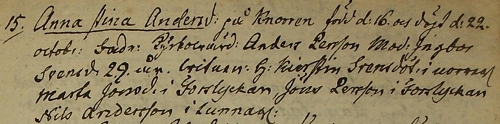 15. Anna Stina Andersd: på Knorren född d: 16. och döpt d: 22.
octobr: Fadr: Kyrkowärd: Anders Person Mod: Ingbor
Svensd: 29. Hust: Kierstin Svensdot: i norra
Marta Jonsd: i Forslyckan, Jöns Person i Forslyckan
Nils Andersson i Lunnar: